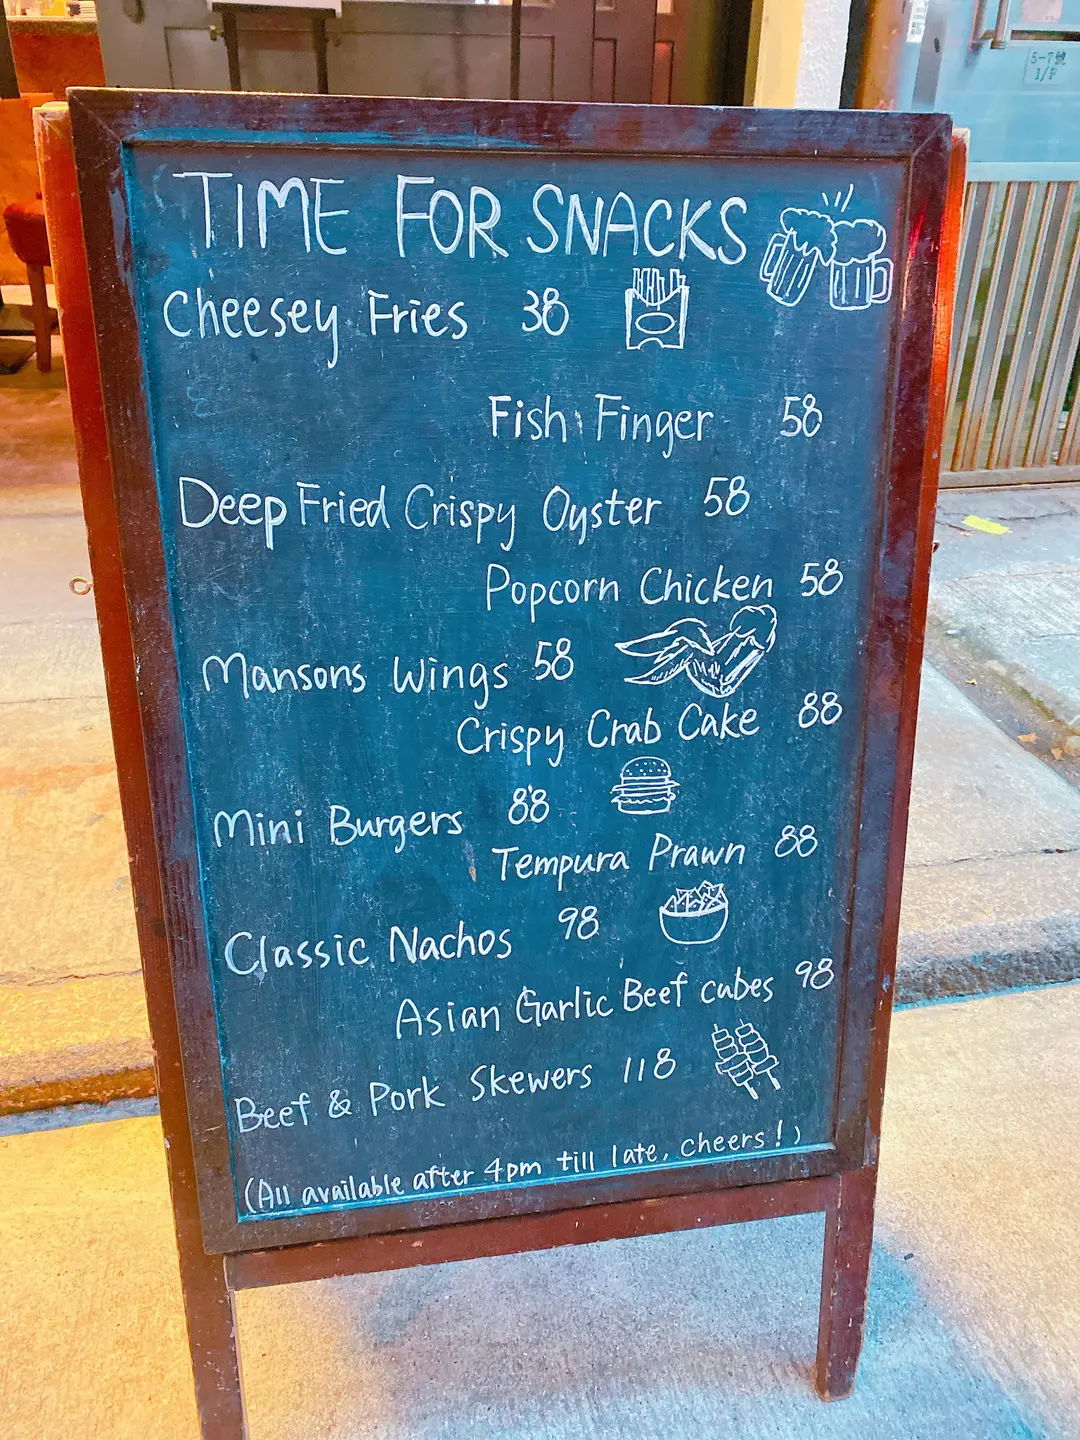 5-7號
1/F
TIME FOR SNACKS
Cheesey Fries 38
Fish Finger 58
Deep Fried Crispy Oyster 58
Popcorn Chicken 58
Mansons Wings 58
Crispy Crab Cake 88
Mini Burgers 88
Tempura Prawn 88
Classic Nachos 98
Asian Garlic Beef cubes 98
Beef & Pork Skewers 118
(All available after 4pm till late, cheers!)